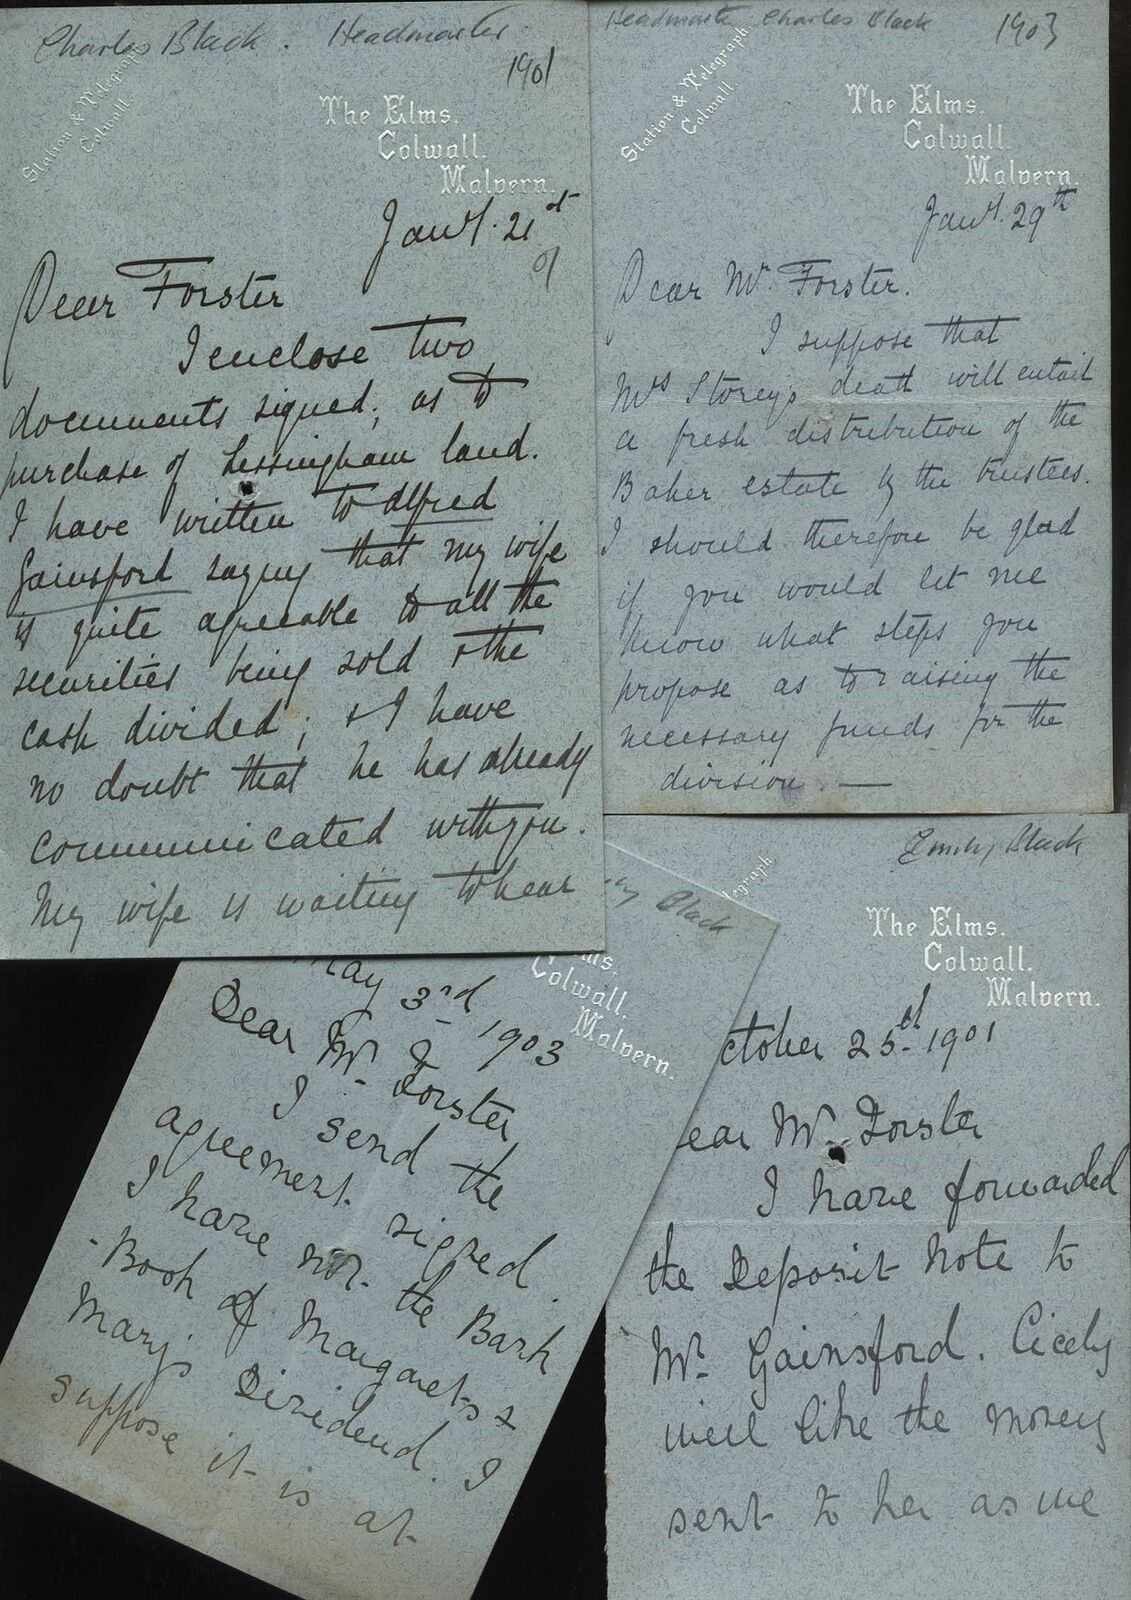 Charles Black. Headmaster.
1901
Station & Telegraph
Colwall.
The Elms,
Colwall.
Malvern.
Jany. 21st
01
Dear Forster
I enclose two
documents signed; as to
purchase of Lessingham land.
I have written to Alfred
Gainsford saying that my wife
is quite agreeable to all the
securities being sold & the
cash divided; & I have
no doubt that he has already
communicated with you.
My wife is waiting to hear
Headmaster Charles Black 1903
Station & Telegraph
Colwall.
The Elms,
Colwall.
Malvern.
Jany. 29th
Dear Mr. Forster.
I suppose that
Mrs Storey's death will entail
a fresh distribution of the
Baker estate by the trustees.
I should therefore be glad
if you would let me
know what steps you
propose as to raising the
necessary funds for the
division. —
Black
ms,
Colwall.
Malvern.
May 3rd 1903
Dear Mr. Forster
I send the
agreement signed.
I have not the Bank
Book of Margaret's &
Mary's Dividend. I
suppose it is at
Emily Black
egraph
The Elms,
Colwall.
Malvern.
ctober 25th 1901
ear Mr. Forster
I have forwarded
the Deposit Note to
Mr. Gainsford. Cicely
will like the money
sent to her as we